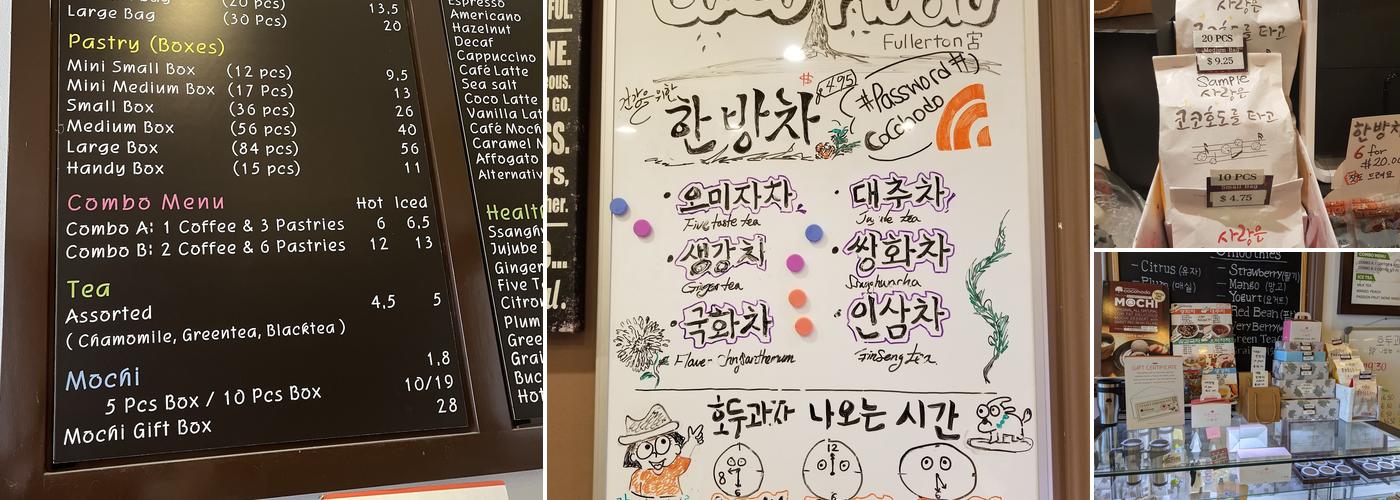 (20 pcs)
Large Bag (30 Pcs) 13.5
20
Pastry (Boxes)
Mini Small Box (12 pcs) 9,5
Mini Medium Box (17 Pcs) 13
Small Box (36 pcs) 26
Medium Box (56 pc) 40
Large Box (84 pcs) 56
Handy Box (15 pcs) 11
Combo Menu Hot Iced
Combo A: 1 Coffee & 3 Pastries 6 6,5
Combo B: 2 Coffee & 6 Pastries 12 13
Tea
Assorted 4,5 5
(Chamomile, Greentea, Blacktea)
Mochi 1,8
5 Pcs Box / 10 Pcs Box 10/19
Mochi Gift Box 28
Espresso
Americano
Hazelnut
Decaf
Cappuccino
Café Latte
Sea salt
Coco Latte
Vanilla Lat
Café Moch
Caramel
Affogato
Alternativ
Health
Ssangh
Jujube
Ginger
Five T
Citron
Plum
Gree
Grai
Buc
Hot
Fullerton
건강을 위한
한방차
$4.95
#Password#
Cocohodo
오미자차
Five taste tea
대추차
Jujube tea
생강차
Ginger tea
쌍화차
Ssanghwacha
국화차
인삼차
Ginseng tea
호두과자 나오는 시간
사랑은
20 PCS
Medium Bag
$ 9.25
Sample
사랑은
코코호도를 타고
10 PCS
Small Bag
$ 4.75
사랑은
한방차
6 for
$20.00
Smoothies
Citrus (유자)
Plum (매실)
Strawberry(딸기)
Mango (망고)
Yogurt (요거트)
Red Bean(팥
Green Tea
MOCHI
GIFT CERTIFICATE
COMBO MENU
ICE TEA